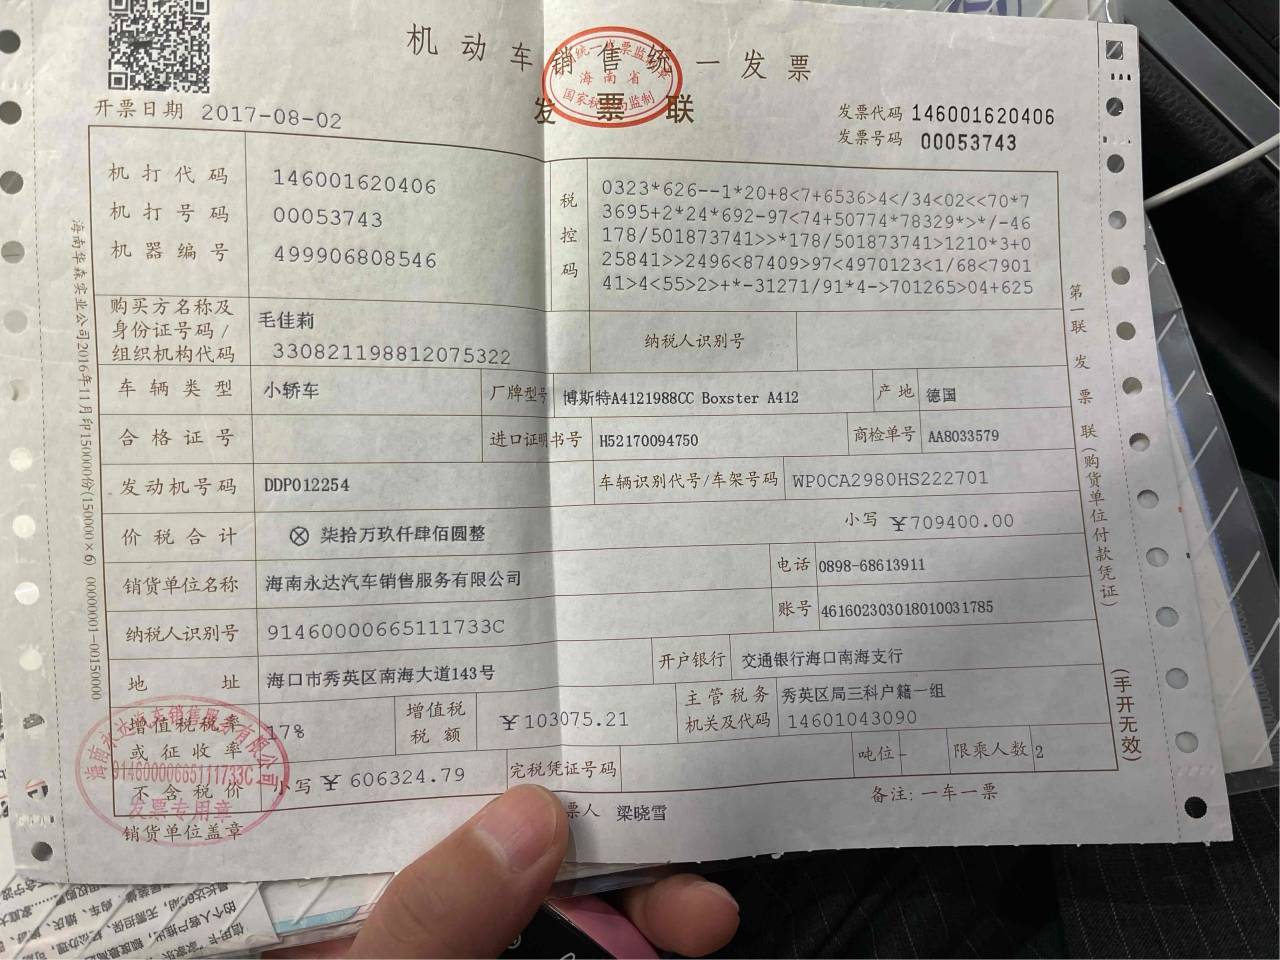 机动车销售统一发票
发票联
统一发票监制章
海南省
国家税务局监制
开票日期 2017-08-02
发票代码 146001620406
发票号码 00053743
机打代码 146001620406
机打号码 00053743
机器编号 499906808546
税控码
0323*626--1*20+8<7+6536>4</34<02<<70*7
3695+2*24*692-97<74+50774*78329*>*/-46
178/501873741>>*178/501873741>1210*3+0
25841>>2496<87409>97<4970123<1/68<7901
41>4<55>2>+*-31271/91*4->701265>04+625
购买方名称及身份证号码/组织机构代码
毛佳莉
330821198812075322
纳税人识别号
车辆类型 小轿车
厂牌型号 博斯特A4121988CC Boxster A412
产地 德国
合格证号
进口证明书号 H52170094750
商检单号 AA8033579
发动机号码 DDP012254
车辆识别代号/车架号码 WP0CA2980HS222701
价税合计 ⊗ 柒拾万玖仟肆佰圆整
小写 ¥709400.00
销货单位名称 海南永达汽车销售服务有限公司
电话 0898-68613911
纳税人识别号 91460000665111733C
账号 461602303018010031785
地址 海口市秀英区南海大道143号
开户银行 交通银行海口南海支行
增值税税率或征收率 17%
增值税税额 ¥103075.21
主管税务机关及代码 秀英区局三科户籍一组
14601043090
不含税价 小写 ¥606324.79
完税凭证号码
吨位 -
限乘人数 2
销货单位盖章
票人 梁晓雪
备注:一车一票
海南永达汽车销售服务有限公司
91460000665111733C
发票专用章
第一联 发票联(购货单位付款凭证)
(手开无效)
海南华森实业公司2016年11月印150000份(150000×6) 00000001-00150000